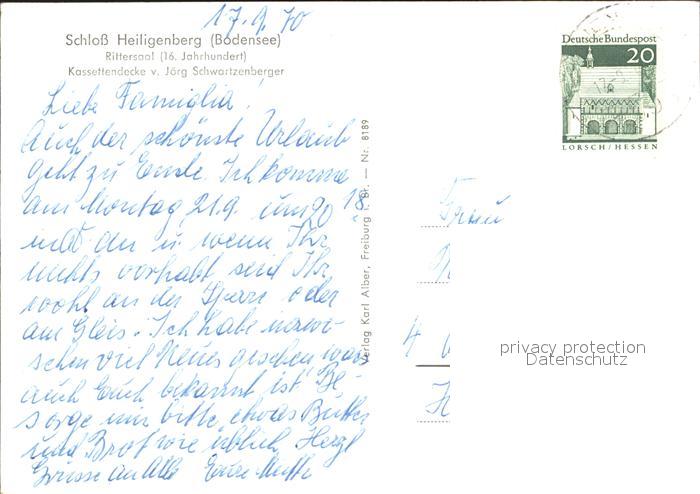 17.9.70
Schloß Heiligenberg (Bodensee)
Rittersaal (16. Jahrhundert)
Kassettendecke v. Jörg Schwartzenberger
Deutsche Bundespost
20
LORSCH/HESSEN
Liebe Famiglia!
Auch der schönste Urlaub
geht zu Ende. Ich komme
am Montag 21.9. um 20 18
an u. wenn Ihr
nichts vorhabt seid Ihr
wohl an der Sperre oder
am Gleis. Ich habe inzwi-
schen viel Neues gesehen was
auch Euch bekannt ist. Be-
sorge mir bitte etwas Butter
und Brot wie üblich. Herzl.
Grüsse an Alle Eure Mutti
Verlag Karl Alber, Freiburg i. Br. — Nr. 8189
Frau
4
privacy protection
Datenschutz